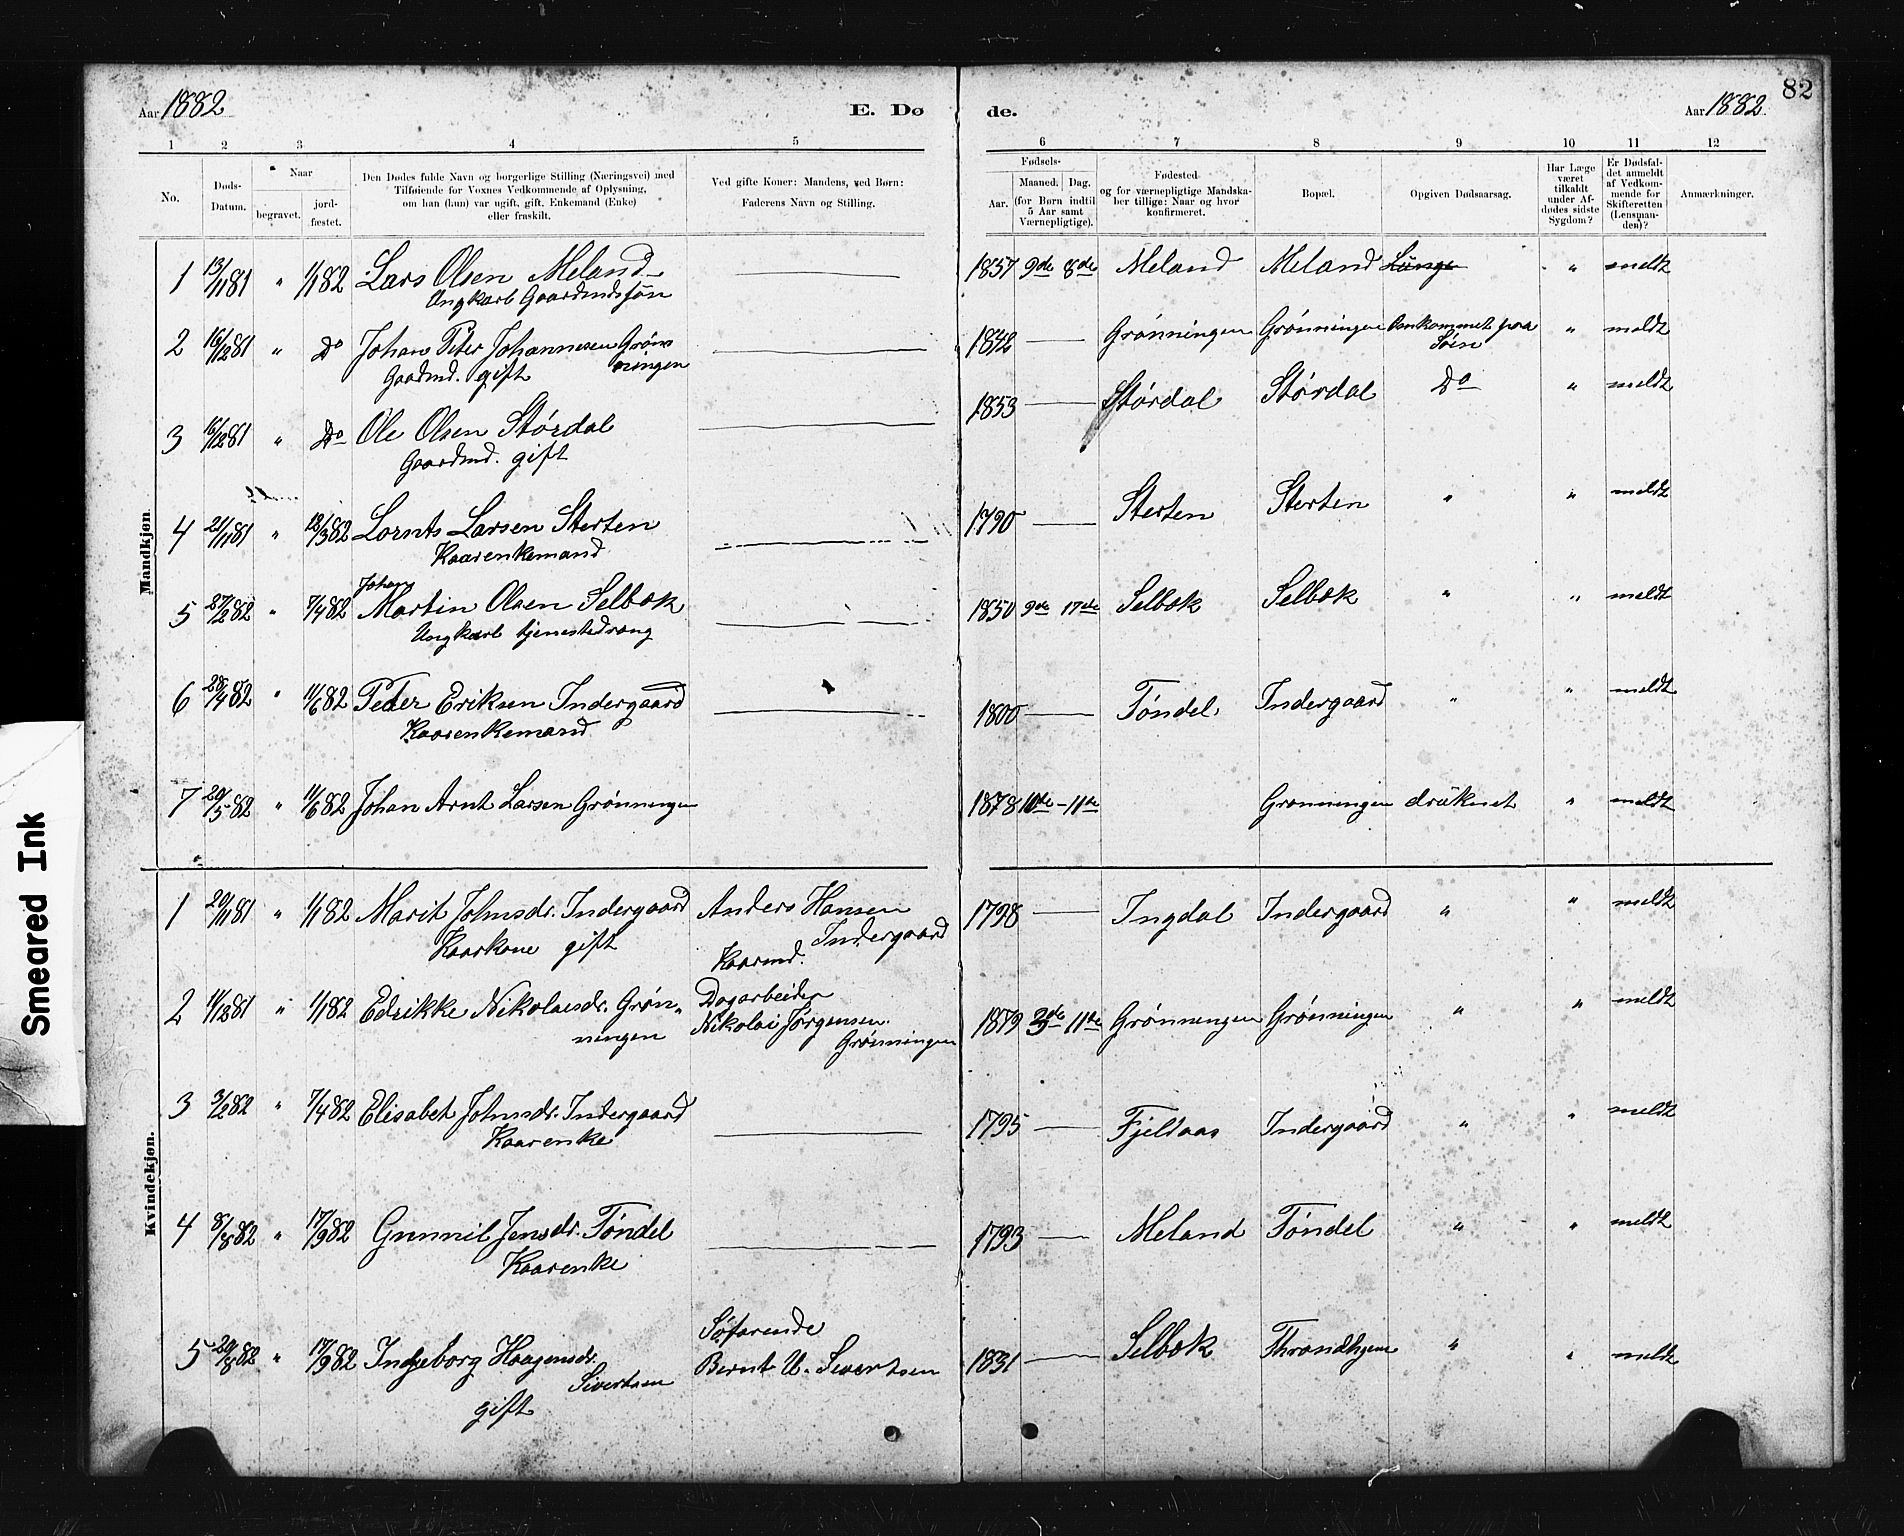 82
Aar 1882. E. Døde. Aar 1882.
1 2 3 4 5 6 7 8 9 10 11 12
No.
Døds-Datum.
Naar
begravet.
jord-fæstet.
Den Dødes fulde Navn og borgerlige Stilling (Næringsvei) med
Tilføiende for Voxnes Vedkommende af Oplysning,
om han (hun) var ugift, gift, Enkemand (Enke)
eller fraskilt.
Ved gifte Koner: Mandens, ved Børn:
Faderens Navn og Stilling.
Fødsels-
Aar.
Maaned. Dag.
(for Børn indtil
5 Aar samt
Værnepligtige).
Fødested
og for værnepligtige Mandska-
ber tillige: Naar og hvor
konfirmeret.
Bopæl.
Opgiven Dødsaarsag.
Har Læge
været
tilkaldt
under Af-
dødes sidste
Sygdom?
Er Dødsfal-
det anmeldt
af Vedkom-
mende for
Skifteretten
(Lensman-
den)?
Anmærkninger.
Mandkjøn.
1 13/11 81 " 1/1 82 Lars Olsen Meland 1857 9de 8de Meland Meland Lunge " meldt
Ungkarl Gaardmdssøn
2 16/12 81 " Do Johan Peter Johannesen Grønningen 1842 Grønningen Grønningen Omkommet paa Søen " meldt
Gaardmd. gift
3 16/12 81 " Do Ole Olsen Størdal 1853 Størdal Størdal Do " meldt
Gaardmd. gift
4 21/11 81 " 12/3 82 Lornts Larsen Sterten 1790 Sterten Sterten " " meldt
Kaarenkemand
Johan
5 27/2 82 " 7/4 82 Martin Olsen Selbæk 1850 9de 17de Selbæk Selbæk " " meldt
Ungkarl tjenestedreng
6 28/4 82 " 11/6 82 Peter Eriksen Indergaard 1800 Tøndel Indergaard " " meldt
Kaarenkemand
7 20/5 82 " 11/6 82 Johan Arnt Larsen Grønningen 1878 10de - 11te Grønningen druknet " meldt
Kvindekjøn.
1 20/11 81 " 1/1 82 Marit Johnsdr. Indergaard Anders Hansen 1798 Ingdal Indergaard " " meldt
Kaarkone gift Indergaard
Kaarmd.
2 14/12 81 " 1/1 82 Edrikke Nikolaisdr. Grøn- Dagarbeider
ningen Nikolai Jørgensen 1879 3de 11te Grønningen Grønningen " " meldt
Grønningen
3 3/2 82 " 7/4 82 Elisabet Johnsdr. Indergaard 1795 Fjeldaas Indergaard " " meldt
Kaarenke
4 8/8 82 " 17/9 82 Gunnil Jensdr. Tøndel 1793 Meland Tøndel " " meldt
Kaarenke
5 20/8 82 " 17/9 82 Ingeborg Haagensdr. Søfarende 1831 Selbæk Throndhjem " " meldt
Sivertsen Bernt U. Sivertsen
gift
Smeared Ink